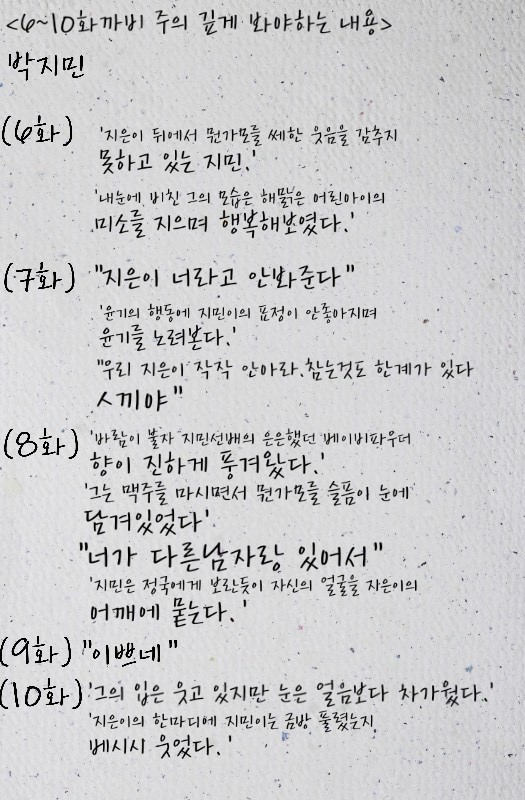 <6~10화까비 주의 깊게 봐야하는 내용>
박지민
(6화) '지은이 뒤에서 뭔가모를 쎄한 웃음을 감추지
못하고 있는 지민.'
'내눈에 비친 그의 모습은 해맑은 어린아이의
미소를 지으며 행복해보였다.'
(7화) "지은이 너라고 안봐준다"
'윤기의 행동에 지민이의 표정이 안좋아지며
윤기를 노려본다.'
"우리 지은이 작작 안아라.참는것도 한계가 있다
ㅅ끼야"
(8화) '바람이 불자 지민선배의 은은했던 베이비파우더
향이 진하게 풍겨왔다.'
'그는 맥주를 마시면서 뭔가모를 슬픔이 눈에
담겨있었다'
"너가 다른남자랑 있어서"
'지민은 정국에게 보란듯이 자신의 얼굴을 지은이의
어깨에 묻는다.'
(9화) "이쁘네"
(10화) '그의 입은 웃고 있지만 눈은 얼음보다 차가웠다.'
'지은이의 한마디에 지민이는 금방 풀렸는지
베시시 웃었다.'